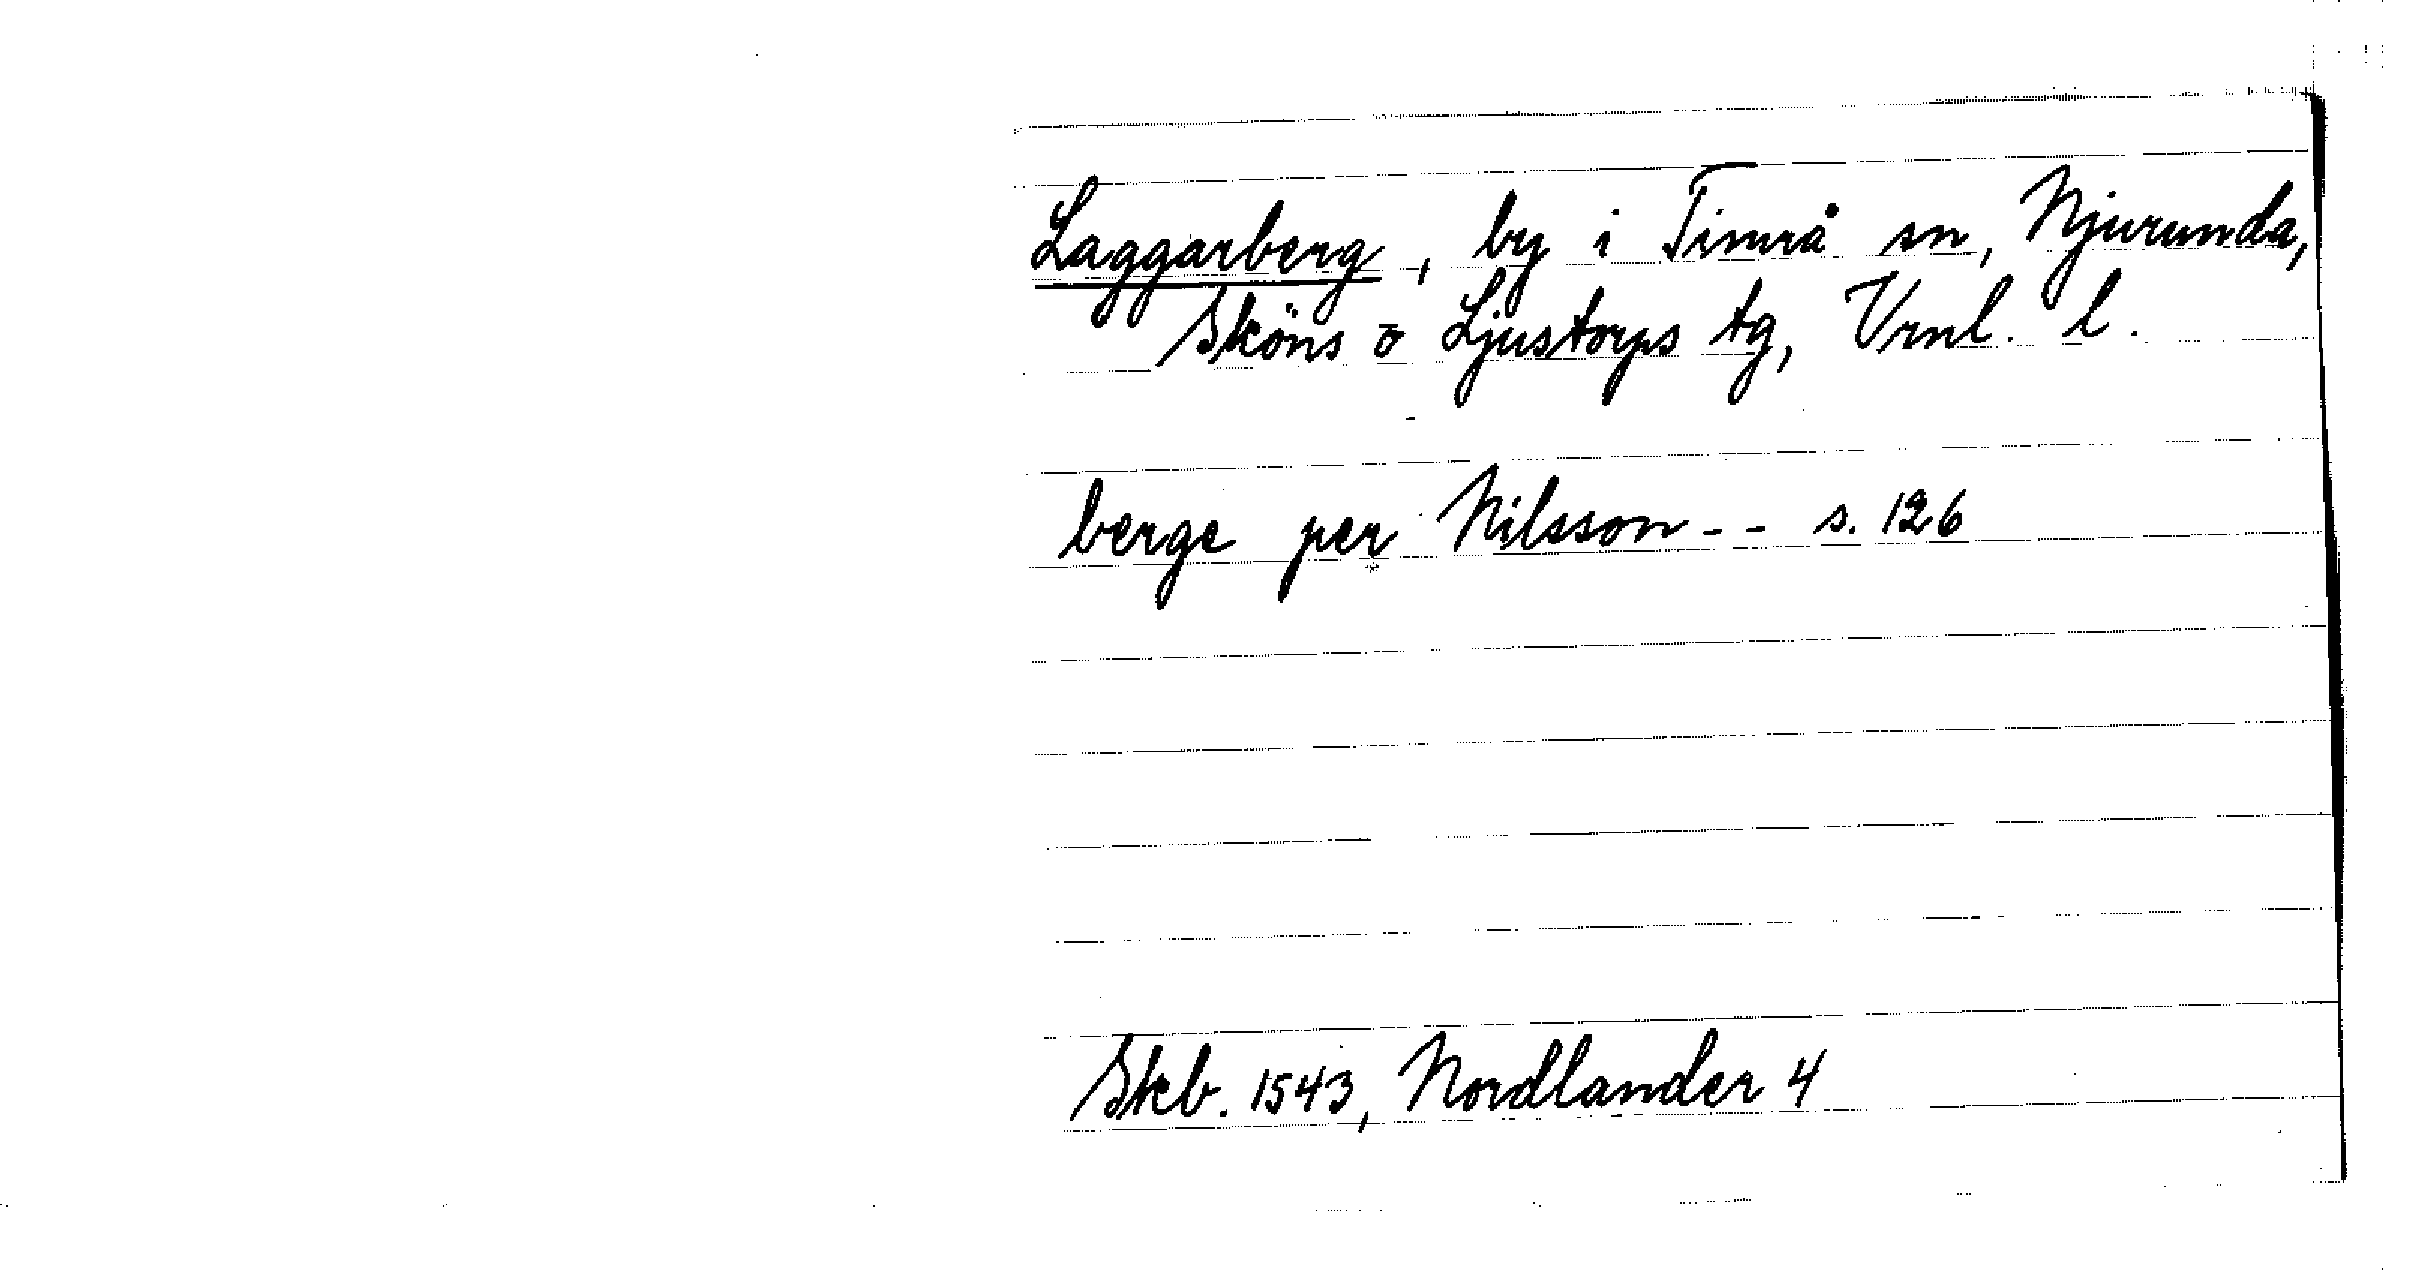 Laggarberg, by i Timrå sn, Njurunda,
Sköns o Ljustorps tg, Vrnl. l.
berge per Nilsson - - s. 126
Skb. 1543, Nordlander 4